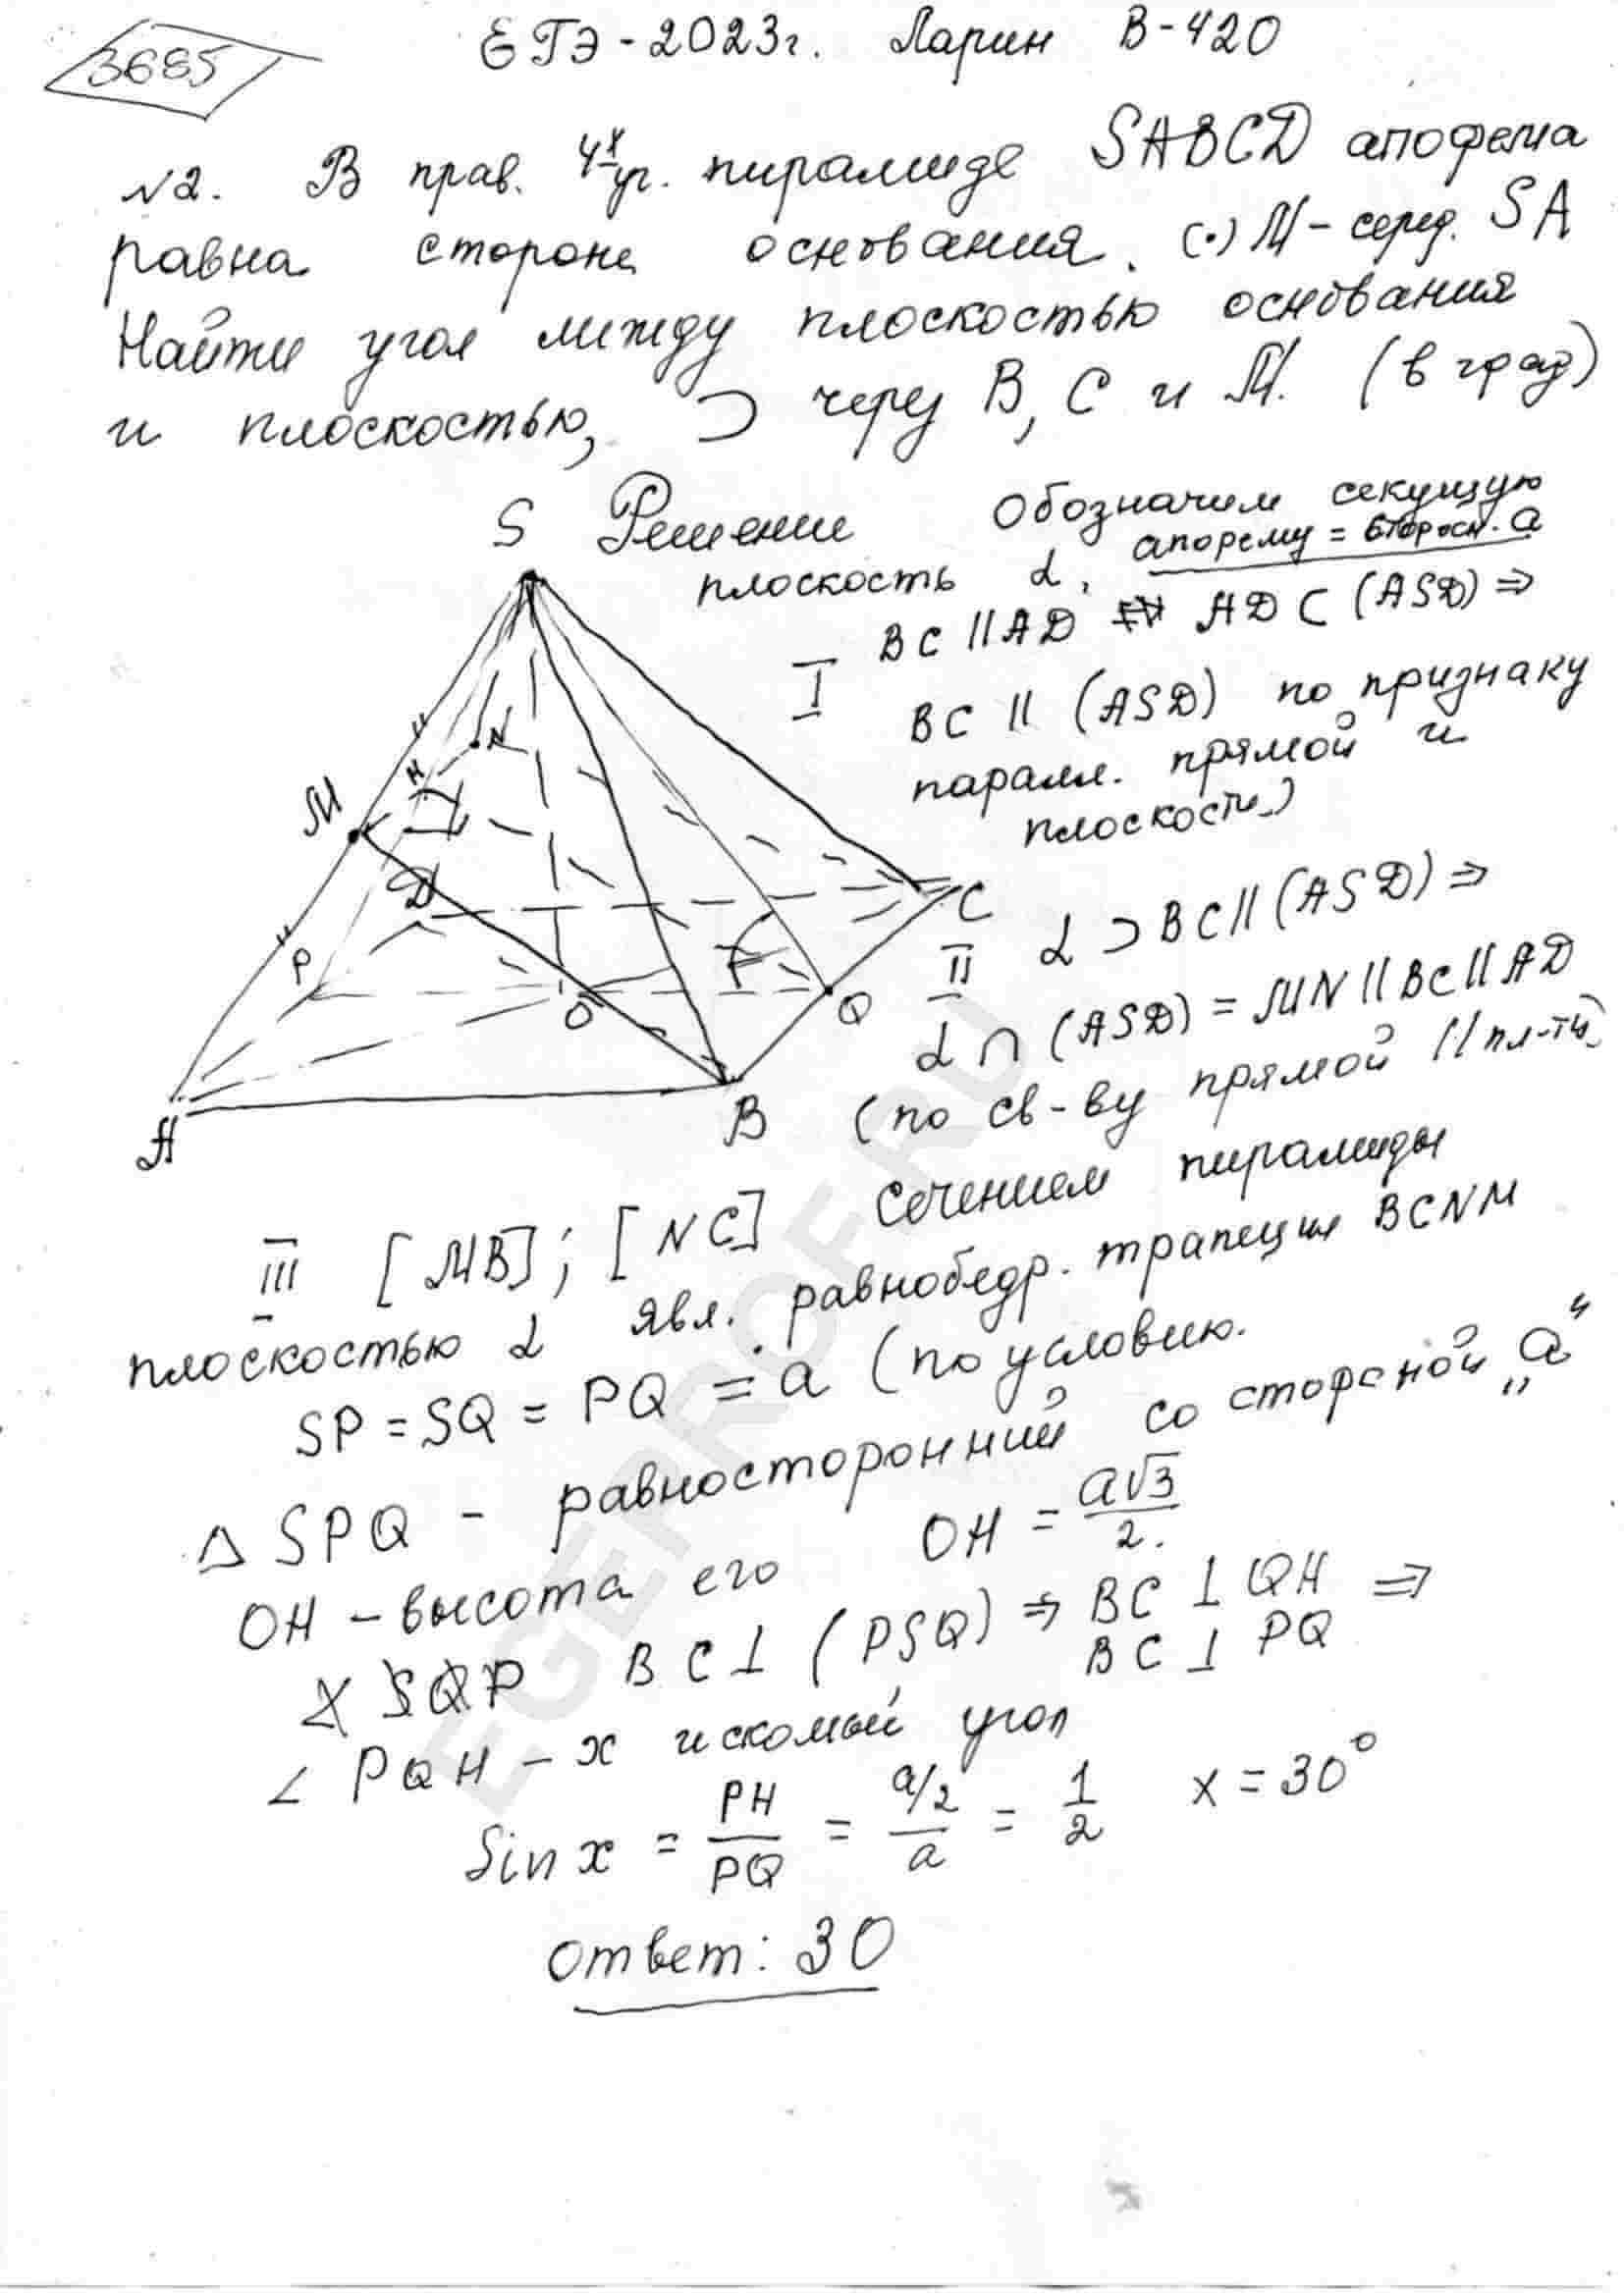 3685
ЕГЭ-2023г. Ларин В-420
N2. В прав. 4х уг. пирамиде SABCD апофема
равна стороне основания. (·) M - серед. SA
Найти угол между плоскостью основания
и плоскостью, ⊃ через B, C и M. (в град)
S Решение Обозначим секущую
плоскость α, апофему = сторосн. a
I BC || AD AD ⊂ (ASD) ⇒
BC || (ASD) по признаку
паралл. прямой и
плоскости)
N
M
H
D
P
O
Q
C
A
B
II α ⊃ BC || (ASD) ⇒
α ∩ (ASD) = MN || BC || AD
(по св-ву прямой || пл-ти)
III [MB]; [NC] Сечением пирамиды
плоскостью α явл. равнобедр. трапеция BCNM
SP = SQ = PQ = a (по условию.
△ SPQ - равносторонний со стороной „a“
OH - высота его OH = a√3/2.
BC ⊥ (PSQ) ⇒ BC ⊥ QH ⇒
BC ⊥ PQ
∠ PQH - x искомый угол
Sin x = PH/PQ = a/2/a = 1/2 x = 30°
Ответ: 30
EGEPROF.RU